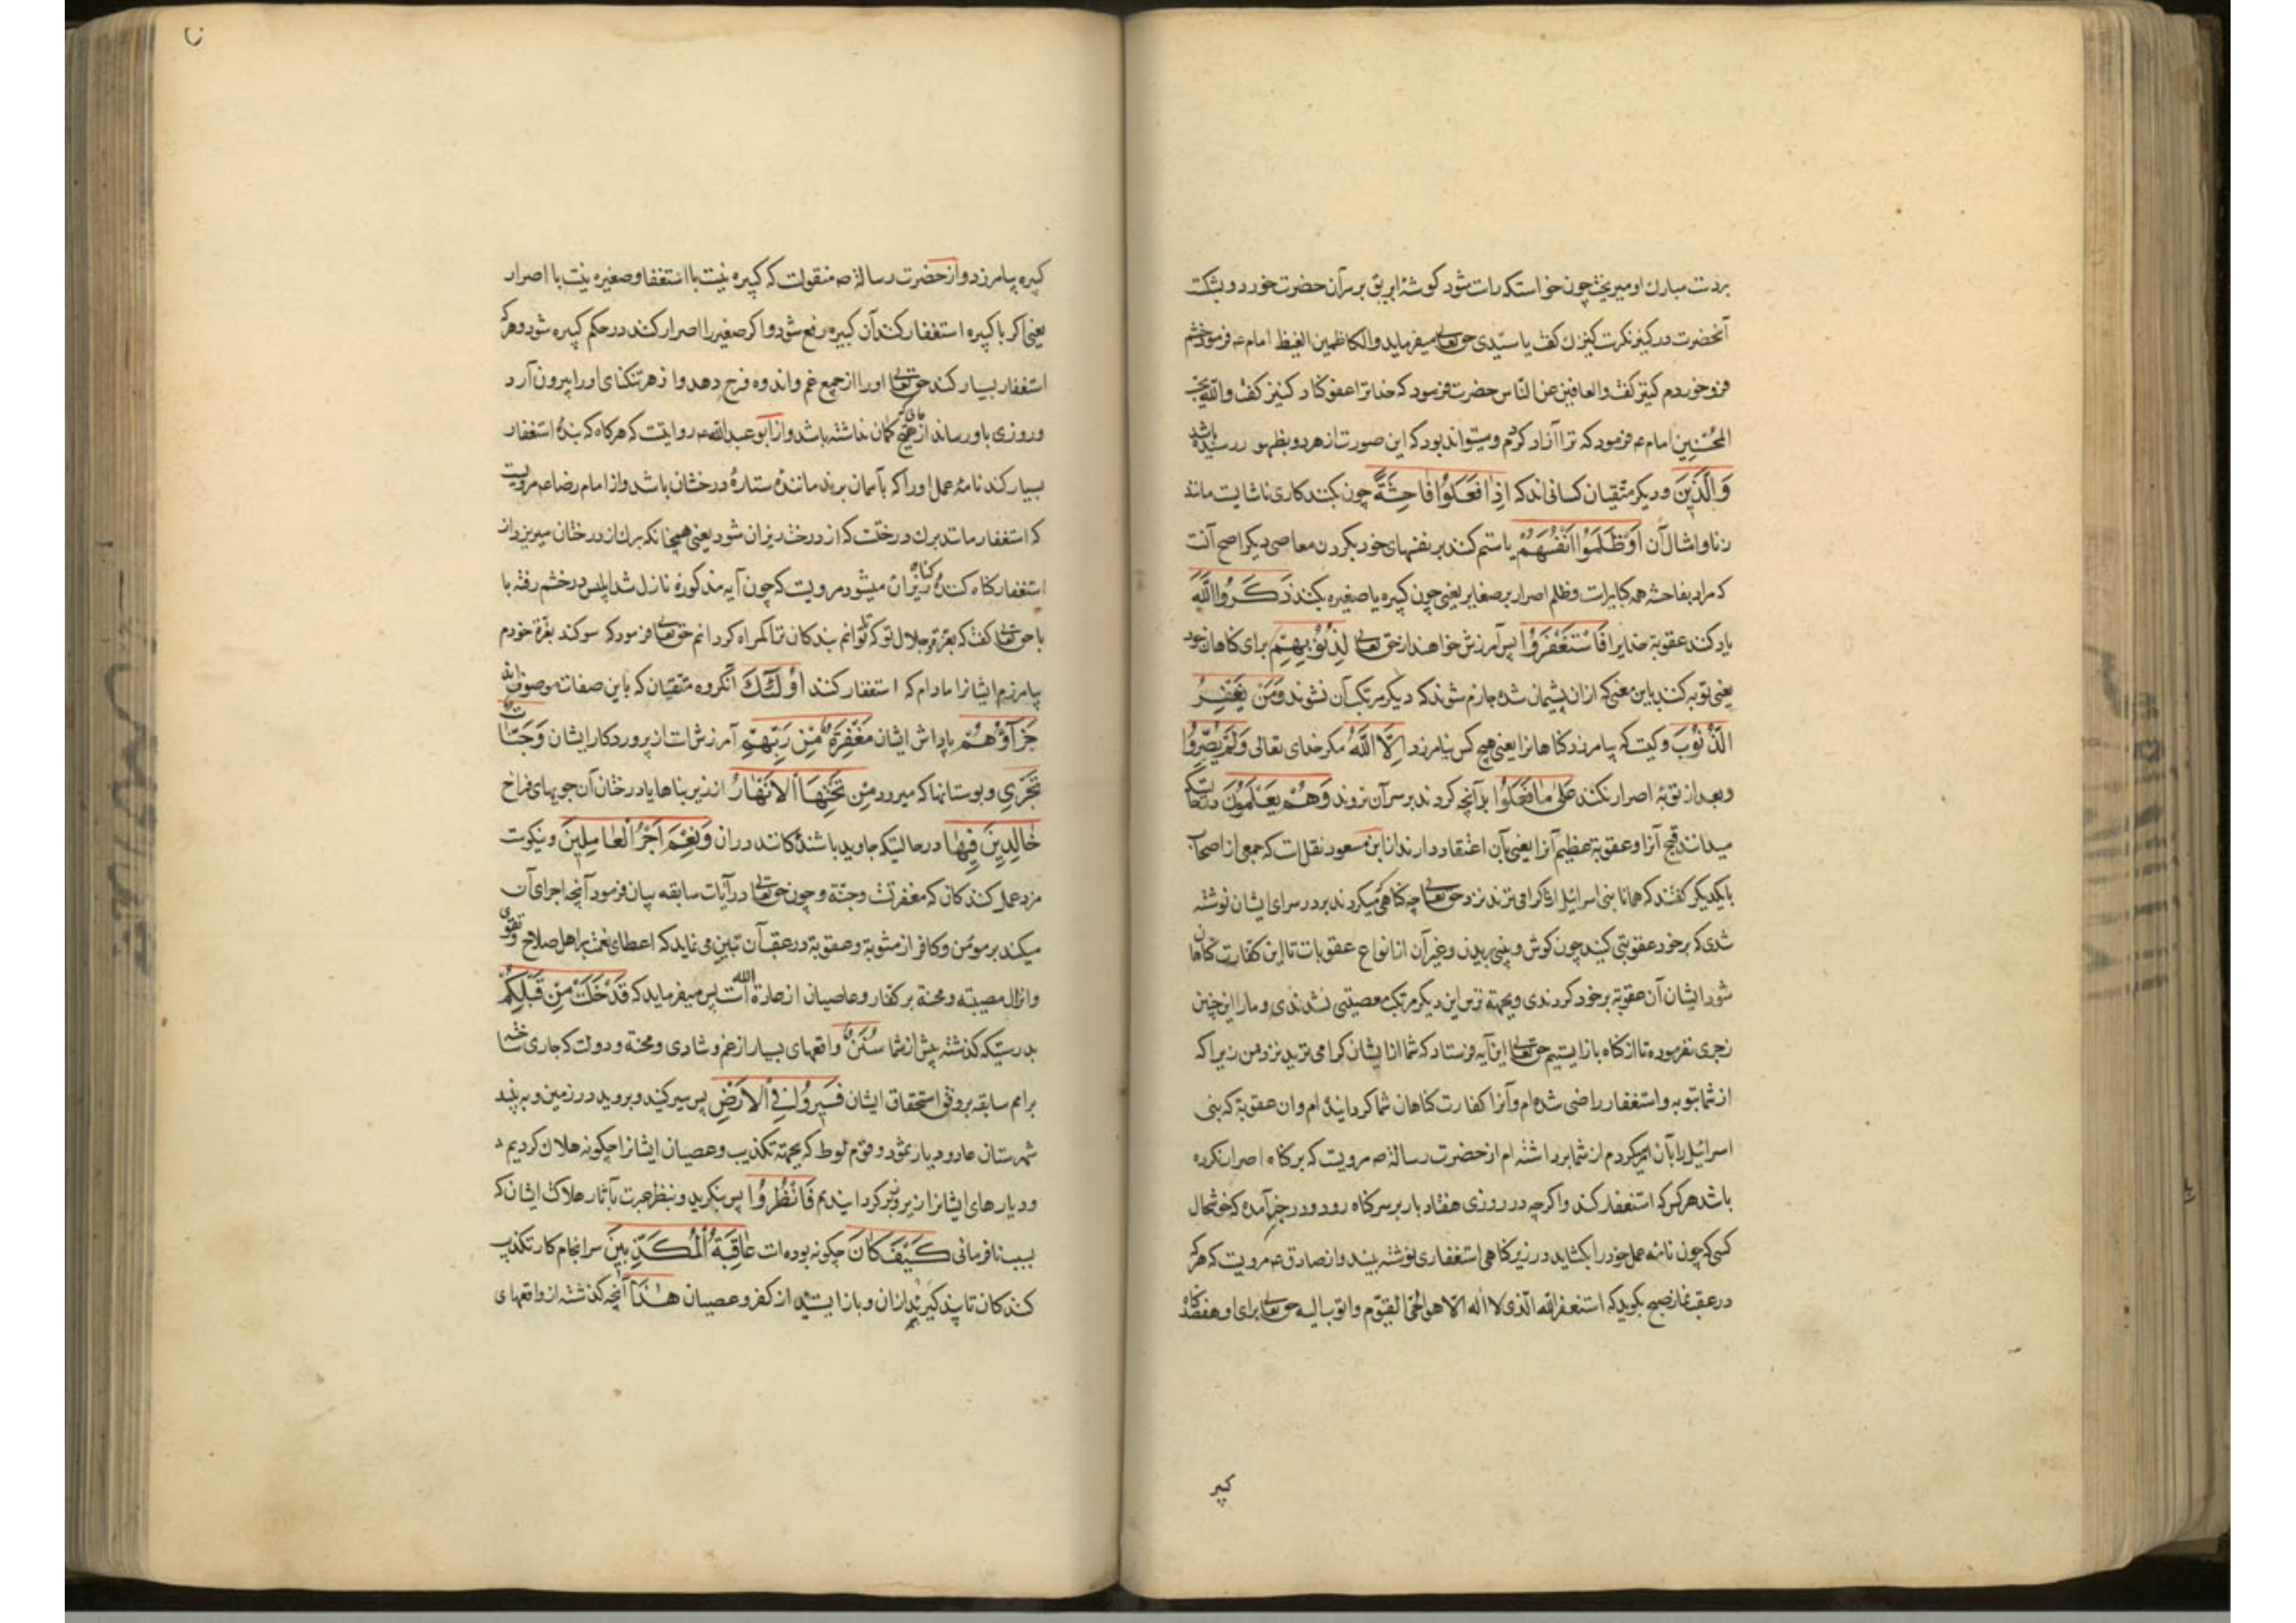 بردست مبارك او میریخت چون خواست که راست شود کوشهٔ ابریق بر سر آن حضرت خورد و بشکست
آنحضرت در کنیز نکریست کنیزك کفت یا سیّدی حق تعالی میفرماید والکاظمین الغیظ امام ع فرمود خشم
فرو خوردم کنیز کفت والعافین عن النّاس حضرت فرمود که خدا ترا عفو کناد کنیز کفت واللّه یحب
المُحسنین امام ع فرمود که ترا آزاد کردم و میتواند بود که این صورت از هر دو بظهور رسیده باشد
وَالَّذینَ و دیکر متقیان کسانی اند که اِذا فَعَلُوا فاحِشَةً چون بکنند کاری ناشایست مانند
زنا و امثال آن اَوْ ظَلَمُوا اَنْفُسَهُمْ یا ستم کنند بر نفسهای خود بکردن معاصی دیکر اصح آنست
که مراد بفاحشه همه کبایر است و ظلم اصرار بر صغایر یعنی چون کبیره یا صغیره بکنند ذَکَرُوا اللّهَ
یاد کنند عقوبة خدایرا فَاسْتَغْفَرُوا پس آمرزش خواهند از حق تعالی لِذُنُوبِهِمْ برای کناهان خود
یعنی توبه کنند باین معنی که از ان پشیمان شده جازم شوند که دیکر مرتکب آن نشوند وَمَنْ یَغْفِرُ
الذُّنُوبَ و کیست که بیامرزد کناهانرا یعنی هیچ کس نیامرزد اِلّا اللّهُ مکر خدای تعالی وَلَمْ یُصِرُّوا
و بعد از توبه اصرار نکنند عَلی ما فَعَلُوا بر آنچه کردند بر سر آن نروند وَهُمْ یَعْلَمُونَ درحالتیکه
میدانند قبح آنرا و عقوبة عظیم آنرا یعنی بآن اعتقاد دارند از ابن مسعود نقلست که جمعی از اصحاب
با یکدیکر کفتند که همانا بنی اسرائیل از ما کرامی ترند نزد حق تعالی چه کناهی میکردند بر در سرای ایشان نوشته
شدی که بر خود عقوبتی کنید چون کوش و بینی بریدن و غیر آن از انواع عقوبات تا این کفارت کناهان
شود ایشان آن عقوبة بر خود کردندی و بجهته ترس این دیکر مرتکب معصیتی نشدندی و ما را این چنین
زجری نفرموده تا از کناه باز ایستیم حق تعالی این آیه فرستاد که شما از ایشان کرامی ترید نزد من زیرا که
از شما بتوبه و استغفار راضی شده ام و آنرا کفارت کناهان شما کردانیده ام و ان عقوبة که بنی
اسرائیل را بآن امر کردم از شما برداشته ام از حضرت رسالة ص مرویست که بر کناه اصرار نکرده
باشد هر کس که استغفار کند و اکرچه در روزی هفتاد بار بر سر کناه رود و در خبر آمده که خوشحال
کسی که چون نامه عمل خود را بکشاید در زیر کناهی استغفاری نوشته بیند و از صادق ع مرویست که هر که
در عقب نماز صبح بکوید که استغفر اللّه الّذی لا اله الّا هو الحیّ القیّوم و اتوب الیه حق تعالی برای او هفتصد کناه
کبیر
کبیره بیامرزد و از حضرت رسالة ص منقولست که کبیره نیست با استغفار و صغیره نیست با اصرار
یعنی اکر با کبیره استغفار کند آن کبیره رفع شود و اکر صغیره را اصرار کند در حکم کبیره شود و هر که
استغفار بسیار کند حق تعالی او را از جمیع غم و اندوه فرج دهد و از هر تنکنای او را بیرون آرد
و روزی باو رساند از جائیکه کمان نداشته باشد و از ابو عبد اللّه ع روایتست که هرکاه که بندهٔ استغفار
بسیار کند نامهٔ عمل او را که بآسمان برند مانندهٔ ستارهٔ درخشان باشد و از امام رضا ع مرویست
که استغفار مانند برك درختست که از درخت ریزان شود یعنی همچنانکه برك از درختان میریزد از
استغفار کناه کنندهٔ ریزان میشود مرویست که چون آیه مذکوره نازل شد ابلیس در خشم رفته با
با حق تعالی کفت که بعزة و جلال تو که تا توانم بندکان ترا کمراه کردانم حق تعالی فرمود که سوکند بعزة خودم
بیامرزم ایشانرا مادام که استغفار کنند اُولٰئِكَ آنکروه متقیان که باین صفات موصوف اند
جَزآؤُهُمْ پاداش ایشان مَغْفِرَةٌ مِنْ رَبِّهِمْ آمرزش است از پروردکار ایشان وَجَنّاتٌ
تَجْرِی و بوستانها که میرود مِنْ تَحْتِهَا الْاَنْهارُ از زیر بناها یا درختان آن جویهای فراخ
خالِدینَ فِیها درحالتیکه جاوید باشندکانند در ان وَنِعْمَ اَجْرُ الْعامِلینَ و نیکوست
مزد عمل کنندکان که مغفرتست و جنة و چون حق تعالی در آیات سابقه بیان فرمود آنچه اجرای آن
میکند بر مومن و کافر از مثوبة و عقوبة در عقب آن تبیین می نماید که اعطای نعمت بر اهل صلاح و تقوی
و انزال مصیبته و محنة بر کفار و عاصیان از عادة اللّه است پس میفرماید که قَدْ خَلَتْ مِنْ قَبْلِکُمْ
بدرستیکه کذشته پیش از شما سُنَنٌ واقعهای بسیار از غم و شادی و محنة و دولت که جاری ساخته
برامم سابقه بر وفق استحقاق ایشان فَسِیرُوا فِی الْاَرْضِ پس سیر کنید و بروید در زمین و به بینید
شهرستان عاد و دیار ثمود و قوم لوط که بجهته تکذیب و عصیان ایشانرا چکونه هلاك کردیم
و دیارهای ایشانرا زیر و زبر کردانیدیم فَانْظُرُوا پس بنکرید و بنظر عبرت بآثار هلاك ایشان که
بسبب نافرمانی کَیْفَ کانَ چکونه بوده است عاقِبَةُ الْمُکَذِّبینَ سرانجام کار تکذیب
کنندکان تا پند کیرید از ان و باز ایستید از کفر و عصیان هٰذا آنچه کذشته از واقعهای